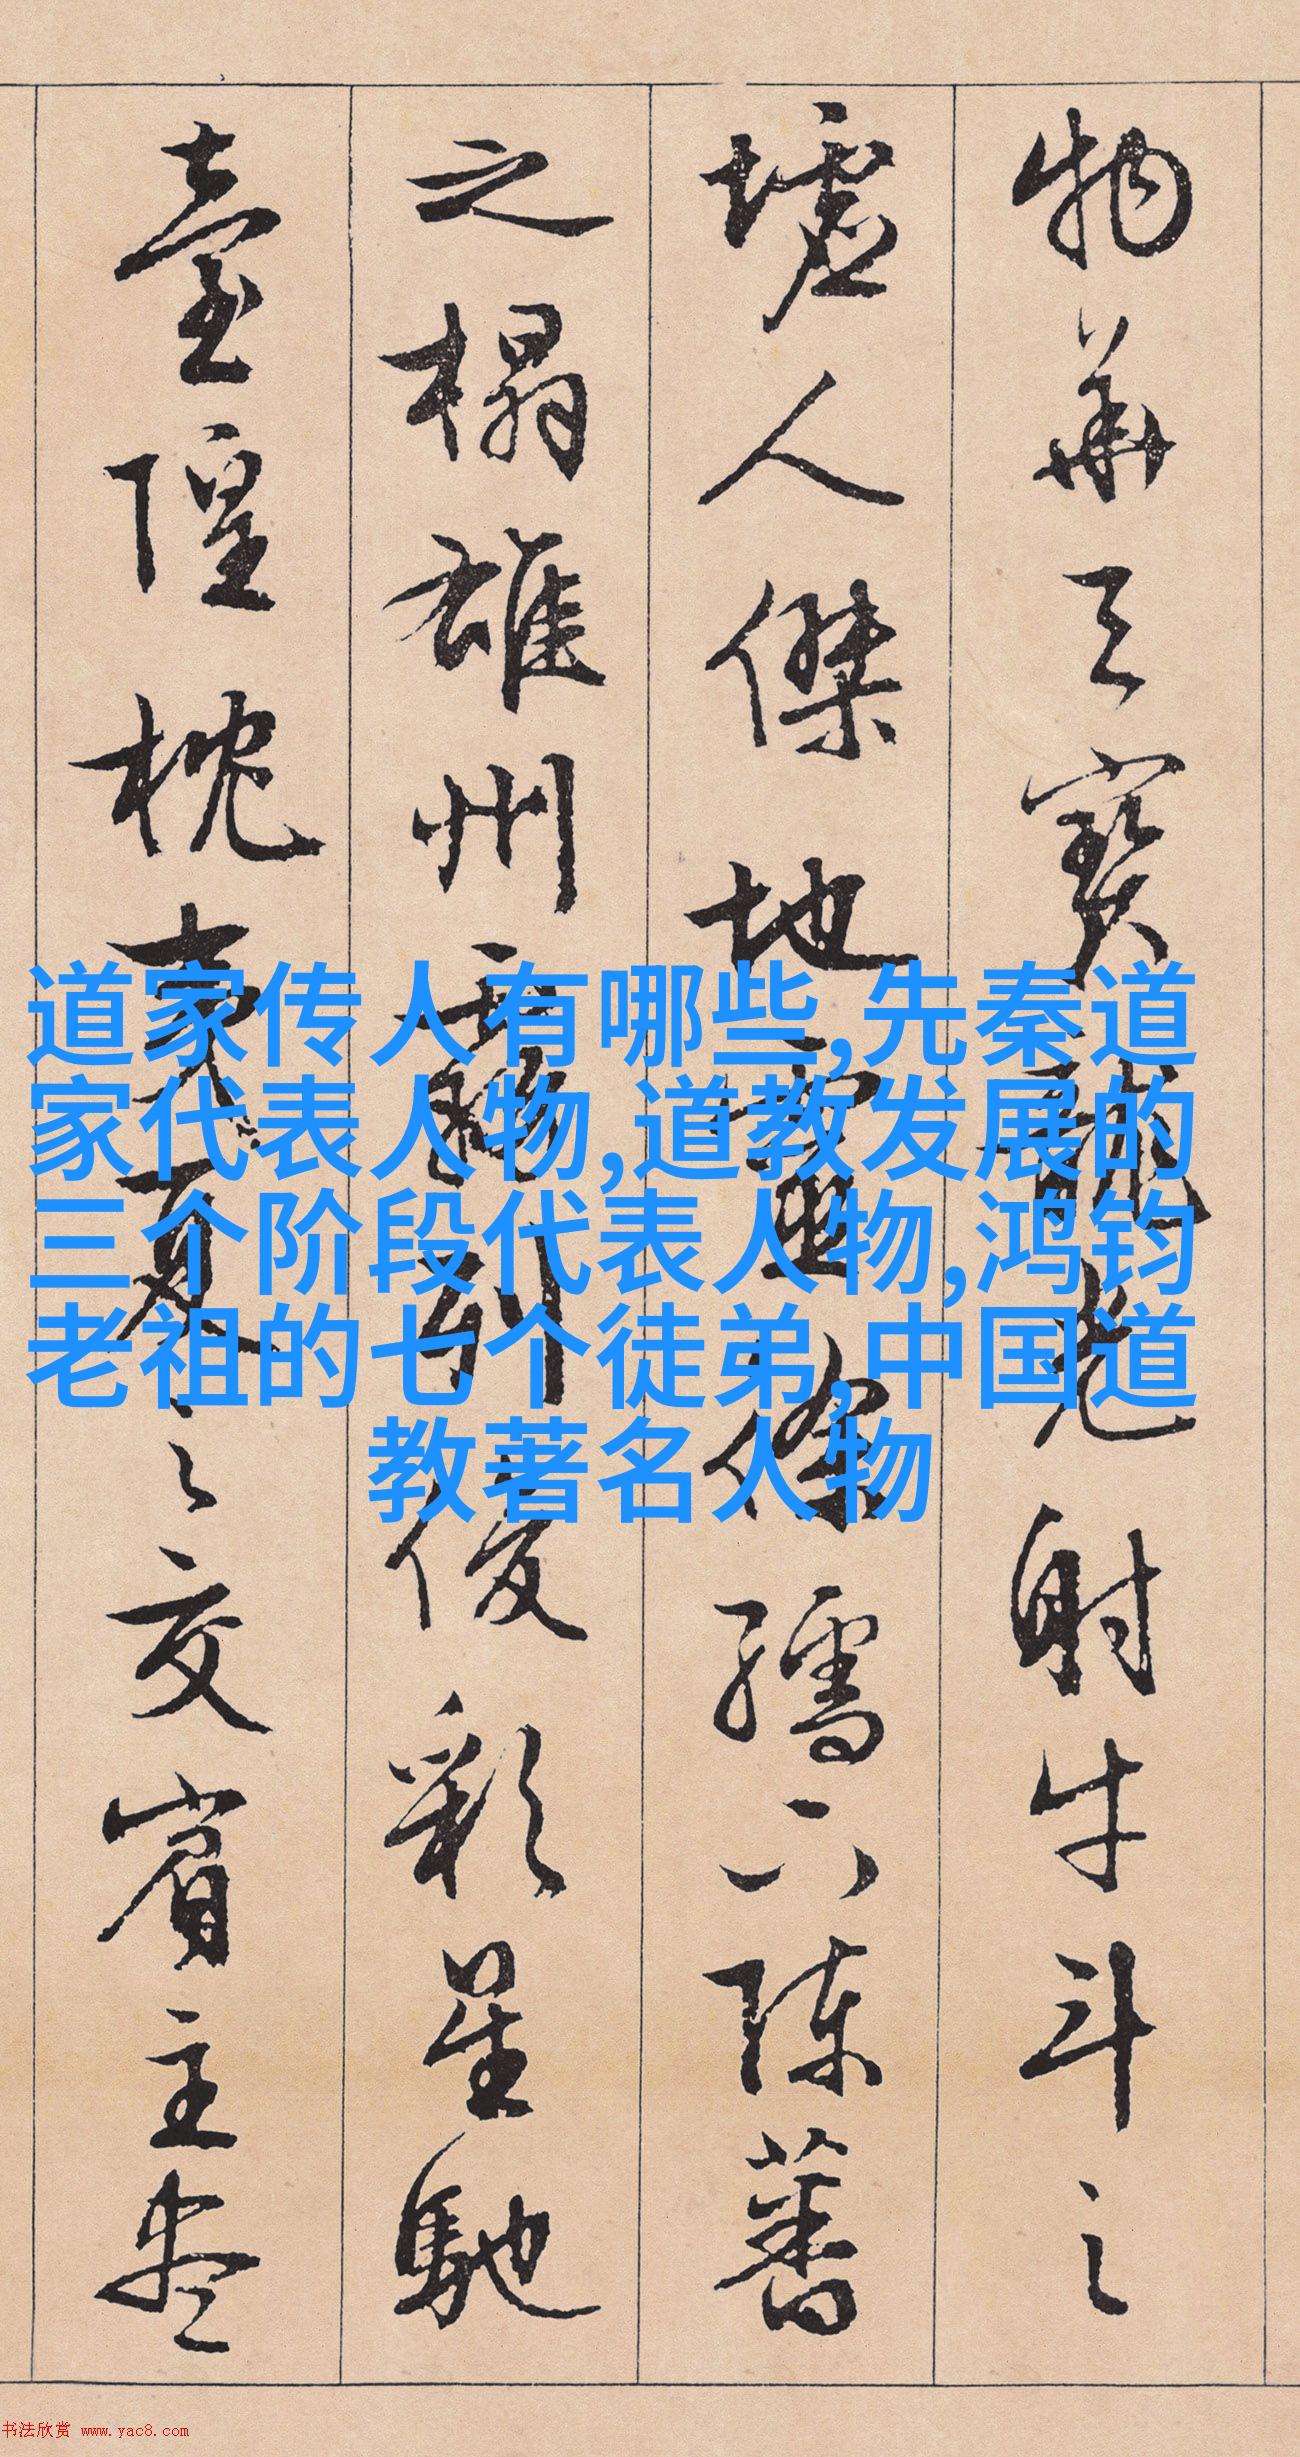 物華天寶龍光射牛斗之
墟人傑地靈徐孺下陳蕃
之榻雄州霧列俊彩星馳
臺隍枕夷夏之交賓主盡
道家传人有哪些,先秦道
家代表人物,道教发展的
三个阶段代表人物,鸿钧
老祖的七个徒弟,中国道
教著名人物
书法欣赏 www.yac8.com